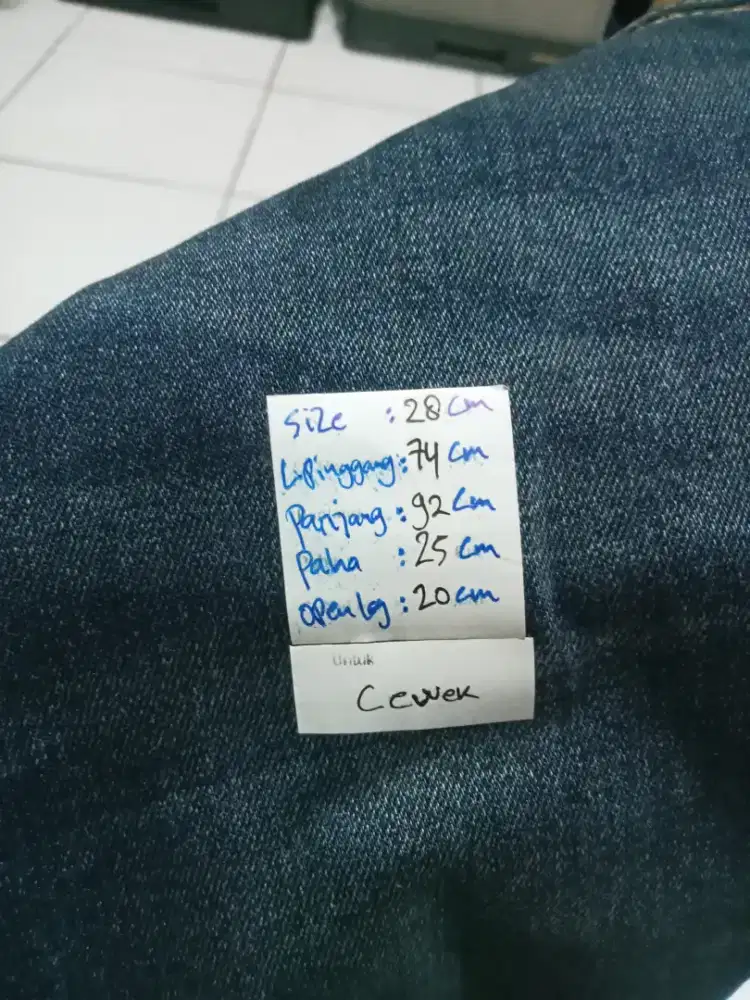 Size : 28 cm
L.Pinggang : 74 cm
Panjang : 92 cm
Paha : 25 cm
open leg : 20 cm
Untuk
Cewek